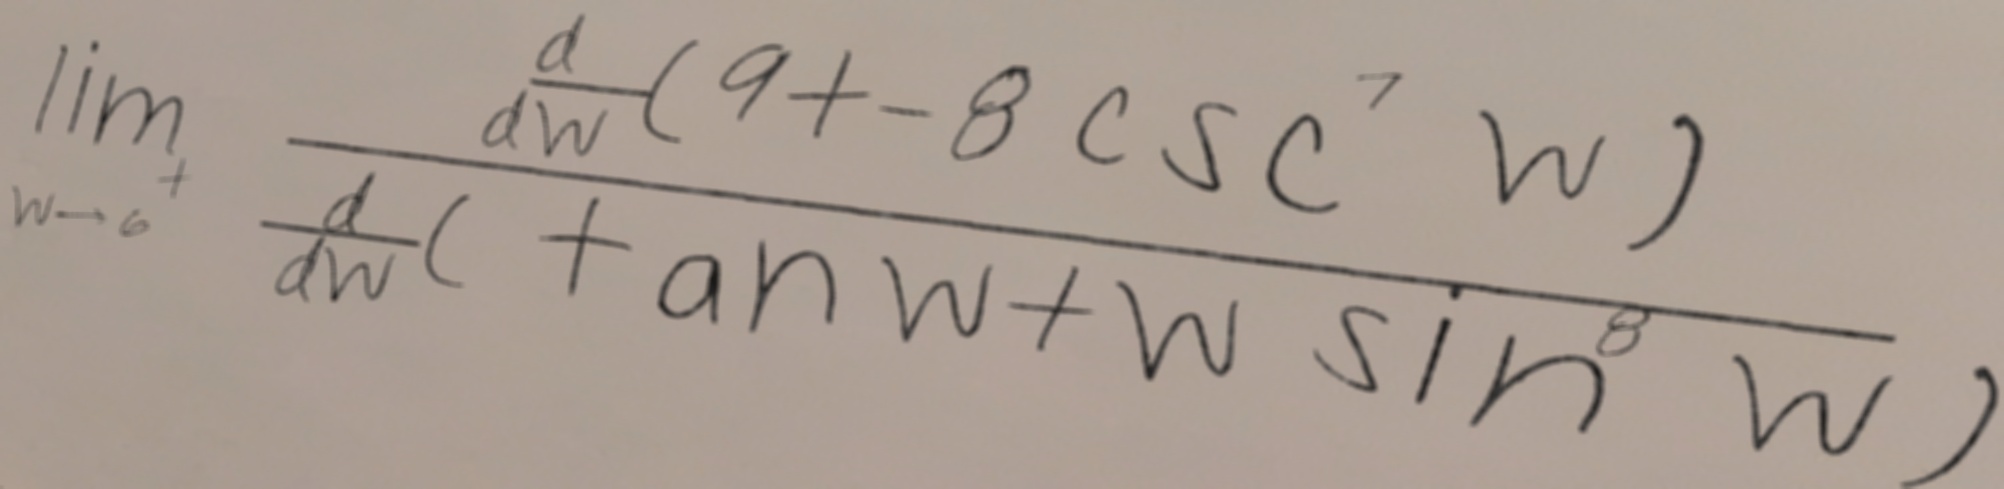 \lim_{w \to 6^+} \frac{\frac{d}{dw}(9+-8\csc^7 w)}{\frac{d}{dw}(\tan w+w\sin^8 w)}